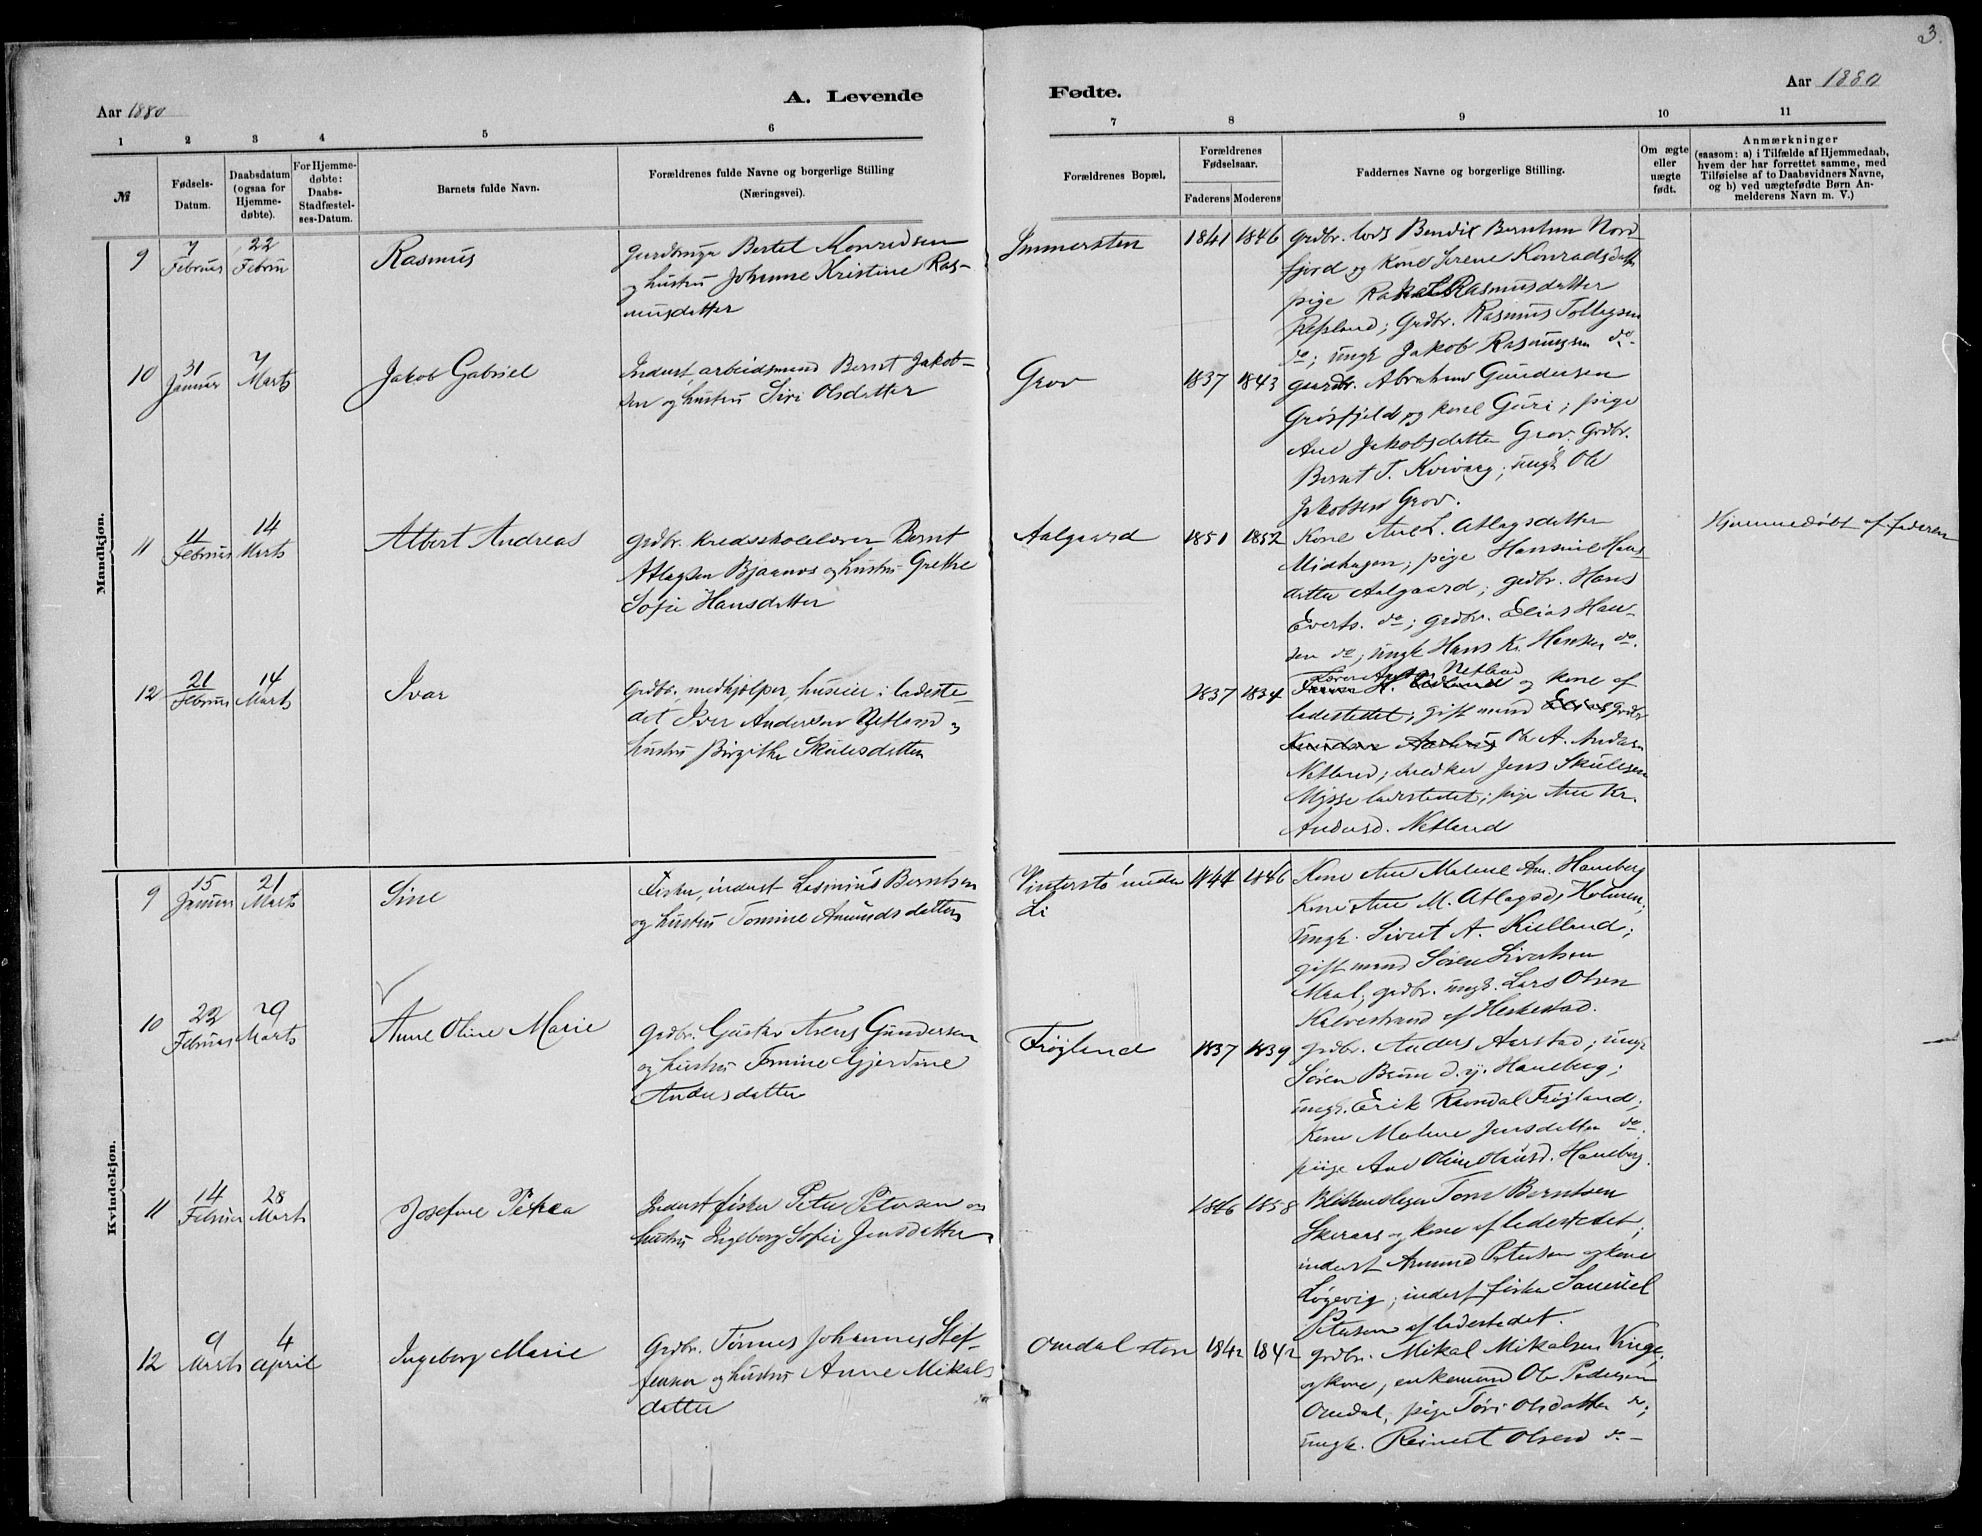 3.
Aar 1880
A. Levende
Fødte.
Aar 1880
1 2 3 4 5 6 7 8 9 10 11
№
Fødsels-
Datum.
Daabsdatum
(ogsaa for
Hjemme-
døbte).
For Hjemme-
døbte:
Daabs-
Stadfæstel-
ses-Datum.
Barnets fulde Navn.
Forældrenes fulde Navne og borgerlige Stilling
(Næringsvei).
Forældrenes Bopæl.
Forældrenes
Fødselsaar.
Faderens Moderens
Faddernes Navne og borgerlige Stilling.
Om ægte
eller
uægte
født.
Anmærkninger
(saasom: a) i Tilfælde af Hjemmedaab,
hvem der har forrettet samme, med
Tilføielse af to Daabsvidners Navne,
og b) ved uægtefødte Børn An-
melderens Navn m. V.)
Mandkjøn.
9
7
Februar
22
Februar
Rasmus
Bertel Konradsen
og hustru Johanne Kristine Ras-
musdatter
1841 1846
grdbr. lods Bendix Berntsen Nord-
fjord og kone Serene Konradsdatter
pige Rakel Rasmusdatter
Rasmus Tollagsen
do; ungk Jakob Rasmussen do.
10
31
Januar
7
Marts
Jakob Gabriel
Inderst, arbeidsmand Bernt Jakob-
sen og hustru Siri Olsdatter
Grov
1837 1843
gardbr. Abraham Gundersen
Grøsfjeld og kone Guri; pige
Ane Jakobsdatter Grov. Grdbr.
Bernt T. ungk Ole
Jakobsen Grov.
11
11
Februar
14
Marts
Albert Andreas
grdbr. kredsskolelærer Bernt
Atlagsen Bjaanes og hustru Grethe
Sofie Hansdatter
Aalgaard
1851 1852
Kone Ane L. Atlagsdatter
Midhagen; pige Hansine Hans-
datter Aalgaard; grdbr. Hans
Everts. do; grdbr. Elias Han-
sen do; ungk Hans Kr. Hansen do.
Hjemmedøbt af faderen
12
21
Februar
14
Marts
Ivar
Grdbr., medhjælper, huseier i ladeste-
det Iver Andersen Netland og
hustru Birgithe Skulesdatter
1837 1834
Netland
og kone af
ladestedet; gift mand grdbr
Ole A. Anders.
Netland; Jens Skulesen
Mysse ladestedet; pige Ane Kr.
Andersd. Netland
Kvindekjøn.
9
15
Januar
21
Marts
Sine
Fisker, inderst Rasmus Berntsen
og hustru Tomine Amundsdatter
Vinterstø under
Li
1844 1846
Kone Ane Malene Am. Haneberg
Kone Ane M. Atlagsd. Holmen;
ungk. Sivert A. Kielland;
gift mand Søren Sivertsen
Maal; grdbr. ungk. Lars Olsen
Kalvestrand af Heskestad.
10
22
Februar
29
Marts
Anne Oline Marie
grdbr. Gustav Asens Gundersen
og hustru Tomine Gjerdine
Andersdatter
Frøyland
1837 1839
grdbr. Anders Aarstad; ungk
Søren Bruun d. y. Haneberg;
ungk. Erik Ravndal Frøyland;
Kone Malene Jensdatter do.
pige Ane Oline Haneberg.
11
14
Februar
28
Marts
Josefine Petrea
Inderst fisker Peter Petersen og
hustru Ingeborg Sofie Jensdatter
1846 1858
Tom Berntsen
Skeraas og kone af ladestedet;
inderst Amund Petersen og kone
Løgevig; inderst fisker Samuel
Petersen af ladestedet.
12
9
Marts
4
April
Ingeborg Marie
Grdbr. Tønnes Johannes Stef-
fensen og hustru Anne Mikals-
datter
Omdal store
1842 1842
grdbr. Mikal Mikalsen Vinge,
og kone; enkemand Ole Pedersen
Omdal, pige Tøri Olsdatter do;
ungk. Reinert Olsen do